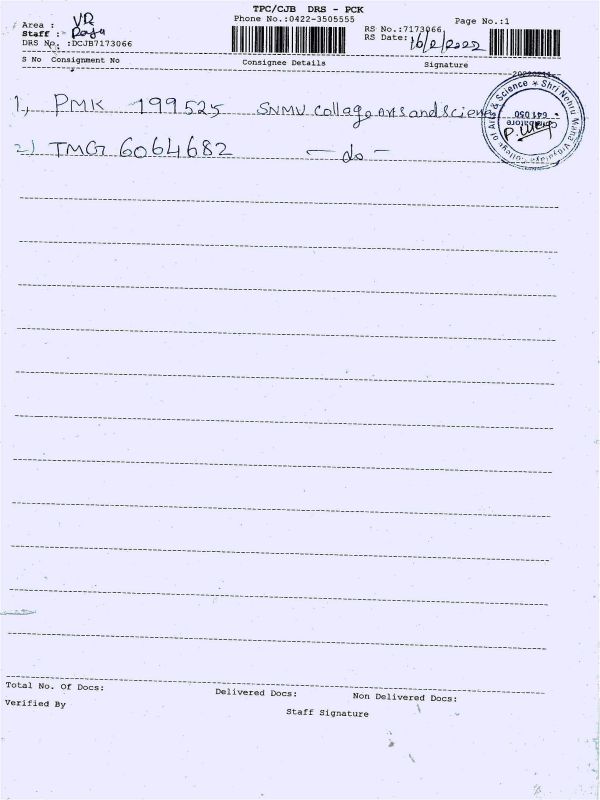 TPC/CJB DRS - PCK
Area : VR
Phone No.:0422-3505555
Page No.:1
Staff : Raju
RS No.:7173066
DRS No. :DCJB7173066
RS Date: 16/2/2022
S No Consignment No
Consignee Details
Signature
1, PMK 199525 SNMV collage arts and Science
2) TMG 6064682 — do —
Shri Nehru Maha Vidyalaya College of Arts & Science
641 050
Total No. Of Docs:
Delivered Docs:
Non Delivered Docs:
Verified By
Staff Signature